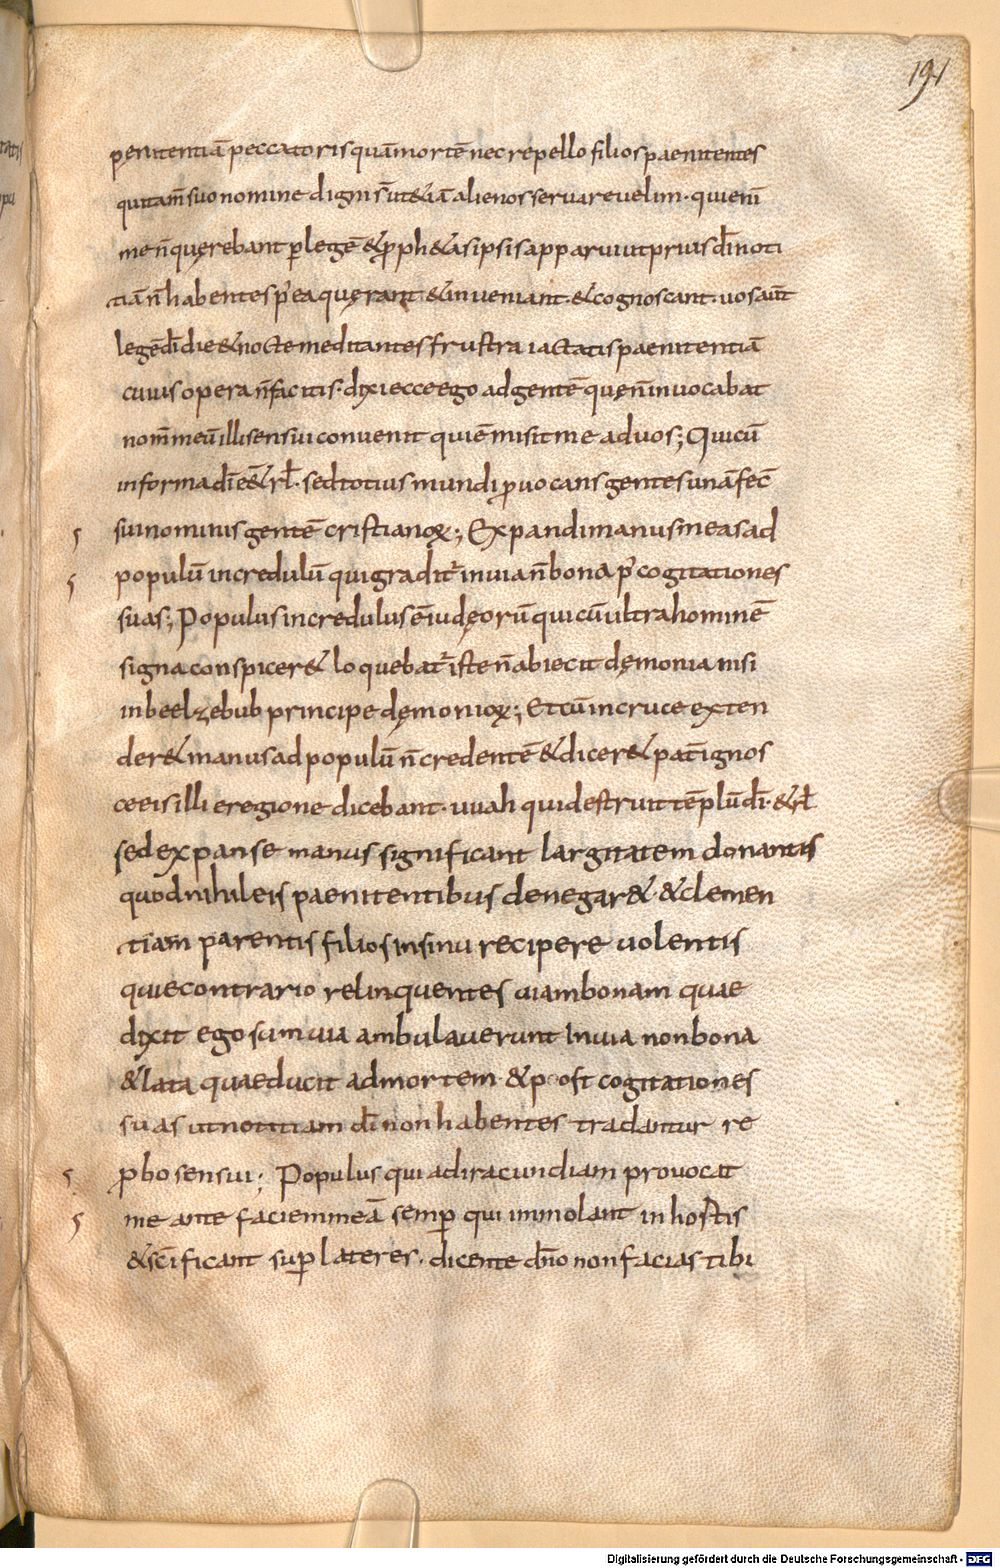 191
penitentiā peccatoris quā mortē nec repello filios paenitentes
qui tam̄ suo nomine digni sūt & iā alienos servare velim · qui eni
me n̄ quęrebant p̱ legē & ꝓph&as ipsis apparui ut prius dī noti
tiā n̄ habentes p̓ ea quęrant & inveniant · & cognoscant · vos aūt
legē dī die & nocte meditantes frustra iactatis paenitentiā
cuius opera n̄ facitis · dixi ecce ego ad gentē quę n̄ invocabat
nom̄ meū illi sensui convenit qui ē misit me ad vos; Qui cū
in forma dī ēē& rł · sed totius mundi ꝓvocans gentes unā fec̄
sui nominis gentē cristianoꝝ; Expandi manus meas ad
populū incredulū qui gradit᷑ in via n̄ bona p̓ cogitationes
suas; Populus incredulus ē iudęorū qui cū ultra hominē
signa conspicer& loquebat᷑ iste n̄ abiecit dęmonia nisi
in beelzebub principe dęmonioꝝ; Et cū in cruce exten
der& manus ad populū n̄ credentē & dicer& pat̄ ignos
ce eis illi e regione dicebant · vuah qui destruit tēplū dī · & rł
sed expanse manus significant largitatem donantis
quod nihil eis paenitentibus denegar& · & clemen
tiam parentis filios in sinu recipere volentis
qui e contrario relinquentes viam bonam quae
dixit ego sum via ambulaverunt in via non bona
& lata quae ducit ad mortem · & post cogitationes
suas ut notitiam dī non habentes tradantur re
ꝓbo sensui; Populus qui ad iracundiam provocat
me ante faciem meā semp̱ qui immolant in hostis
& sc̄ificant sup̱ lateres · dicente dn̄o non facias tibi
Digitalisierung gefördert durch die Deutsche Forschungsgemeinschaft - DFG